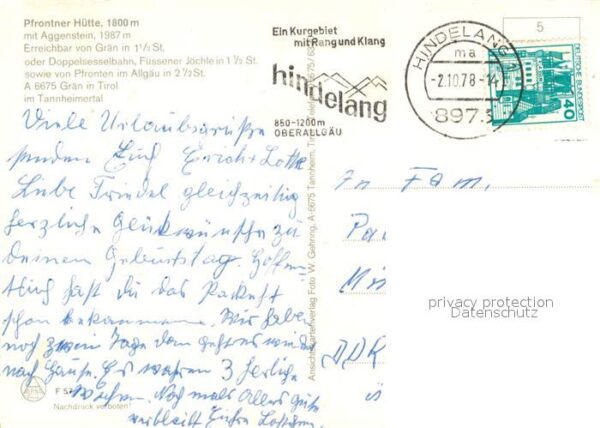 Pfrontner Hütte, 1800 m
mit Aggenstein, 1987 m
Erreichbar von Grän in 1½ St.
oder Doppelsesselbahn, Füssener Jöchle in 1½ St.
sowie von Pfronten im Allgäu in 2½ St.
A 6675 Grän in Tirol
im Tannheimertal
Viele Urlaubsgrüße
senden Euch Erich + Lotte
Liebe Friedel gleichzeitig
herzliche Glückwünsche zu
deinem Geburtstag. Hoffent-
lich hast du das Packett
schon bekommen. Wir haben
noch zwei Tage dann geht es wieder
nach Hause. Es waren 3 herliche
Wochen. Noch mals Alles gute
verbleibt Eure Lotte
F 5
Nachdruck verboten!
Ansichtskartenverlag Foto W. Gehring, A-6675 Tannheim, Tirol
Ein Kurgebiet
mit Rang und Klang
hindelang
850-1200m
OBERALLGÄU
HINDELANG 1
ma
-2.10.78-14
8973
5
DEUTSCHE BUNDESPOST
40
An Fam.
DDR
privacy protection
Datenschutz